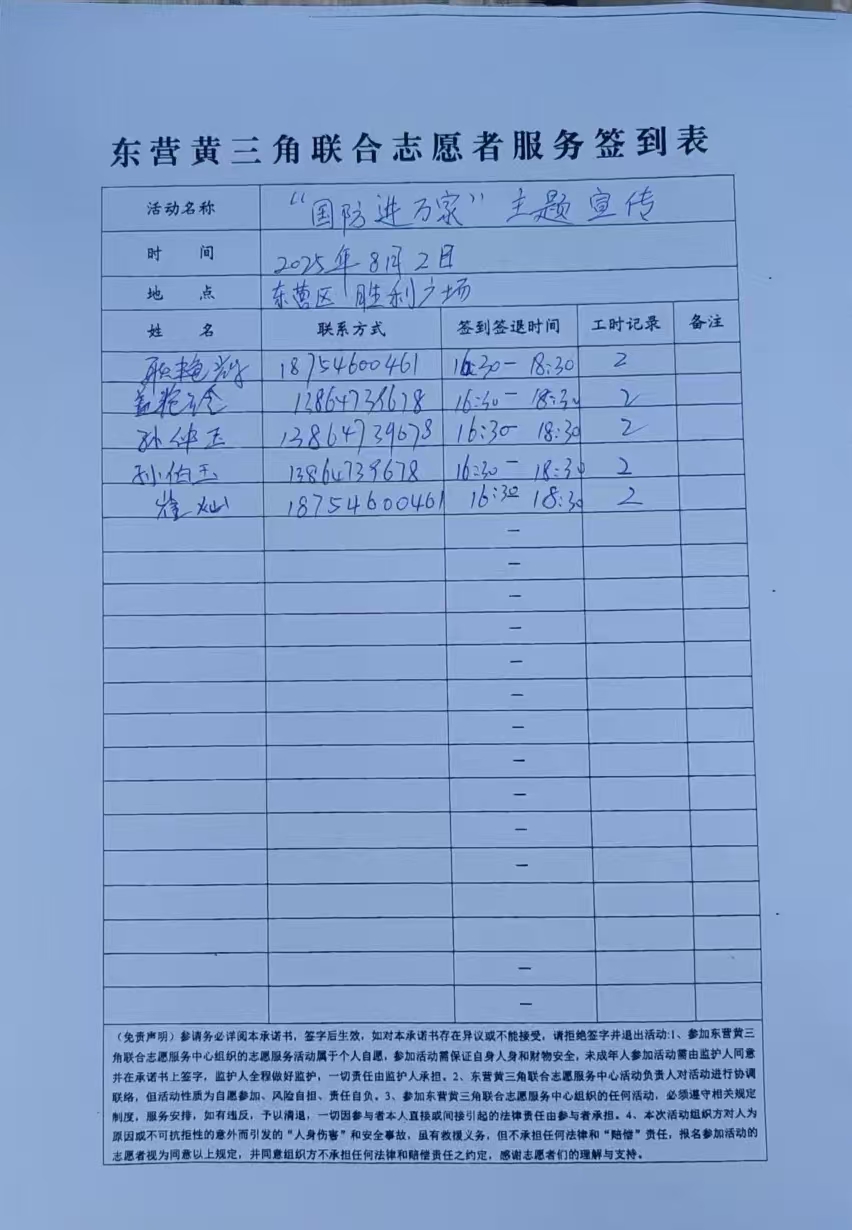 东营黄三角联合志愿者服务签到表
活动名称 “国防进万家”主题宣传
时 间 2025年8月2日
地 点 东营区 胜利广场
姓 名 联系方式 签到签退时间 工时记录 备注
18754600461 16:30-18:30 2
13864739678 16:30-18:30 2
孙仲玉 13864739678 16:30-18:30 2
孙伯玉 13864739678 16:30-18:30 2
崔灿 18754600461 16:30 18:30 2
—
—
—
—
—
—
—
—
—
—
—
—
—
（免责声明）参请务必详阅本承诺书，签字后生效，如对本承诺书存在异议或不能接受，请拒绝签字并退出活动:1、参加东营黄三
角联合志愿服务中心组织的志愿服务活动属于个人自愿，参加活动需保证自身人身和财物安全，未成年人参加活动需由监护人同意
并在承诺书上签字，监护人全程做好监护，一切责任由监护人承担。2、东营黄三角联合志愿服务中心活动负责人对活动进行协调
联络，但活动性质为自愿参加、风险自担、责任自负。3、参加东营黄三角联合志愿服务中心组织的任何活动，必须遵守相关规定
制度，服务安排，如有违反，予以清退，一切因参与者本人直接或间接引起的法律责任由参与者承担。4、本次活动组织方对人为
原因或不可抗拒性的意外而引发的“人身伤害”和安全事故，虽有救援义务，但不承担任何法律和“赔偿”责任，报名参加活动的
志愿者视为同意以上规定，并同意组织方不承担任何法律和赔偿责任之约定，感谢志愿者们的理解与支持。